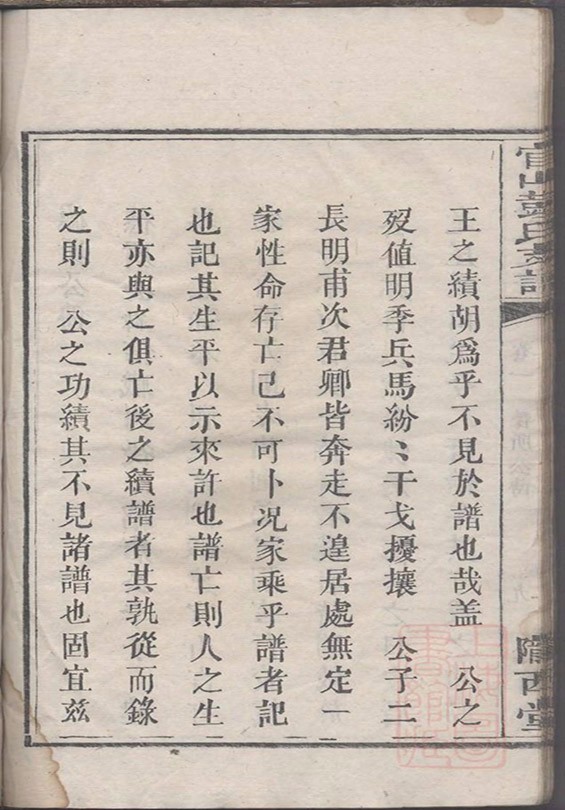 王之績胡爲乎不見於譜也哉盖 公之
歿值明季兵馬紛〻干戈擾攘 公子二
長明甫次君卿皆奔走不遑居處無定一
家性命存亡己不可卜况家乘乎譜者記
也記其生平以示來許也譜亡則人之生
平亦與之俱亡後之續譜者其孰從而錄
之則 公之功績其不見諸譜也固宜兹
隴西堂